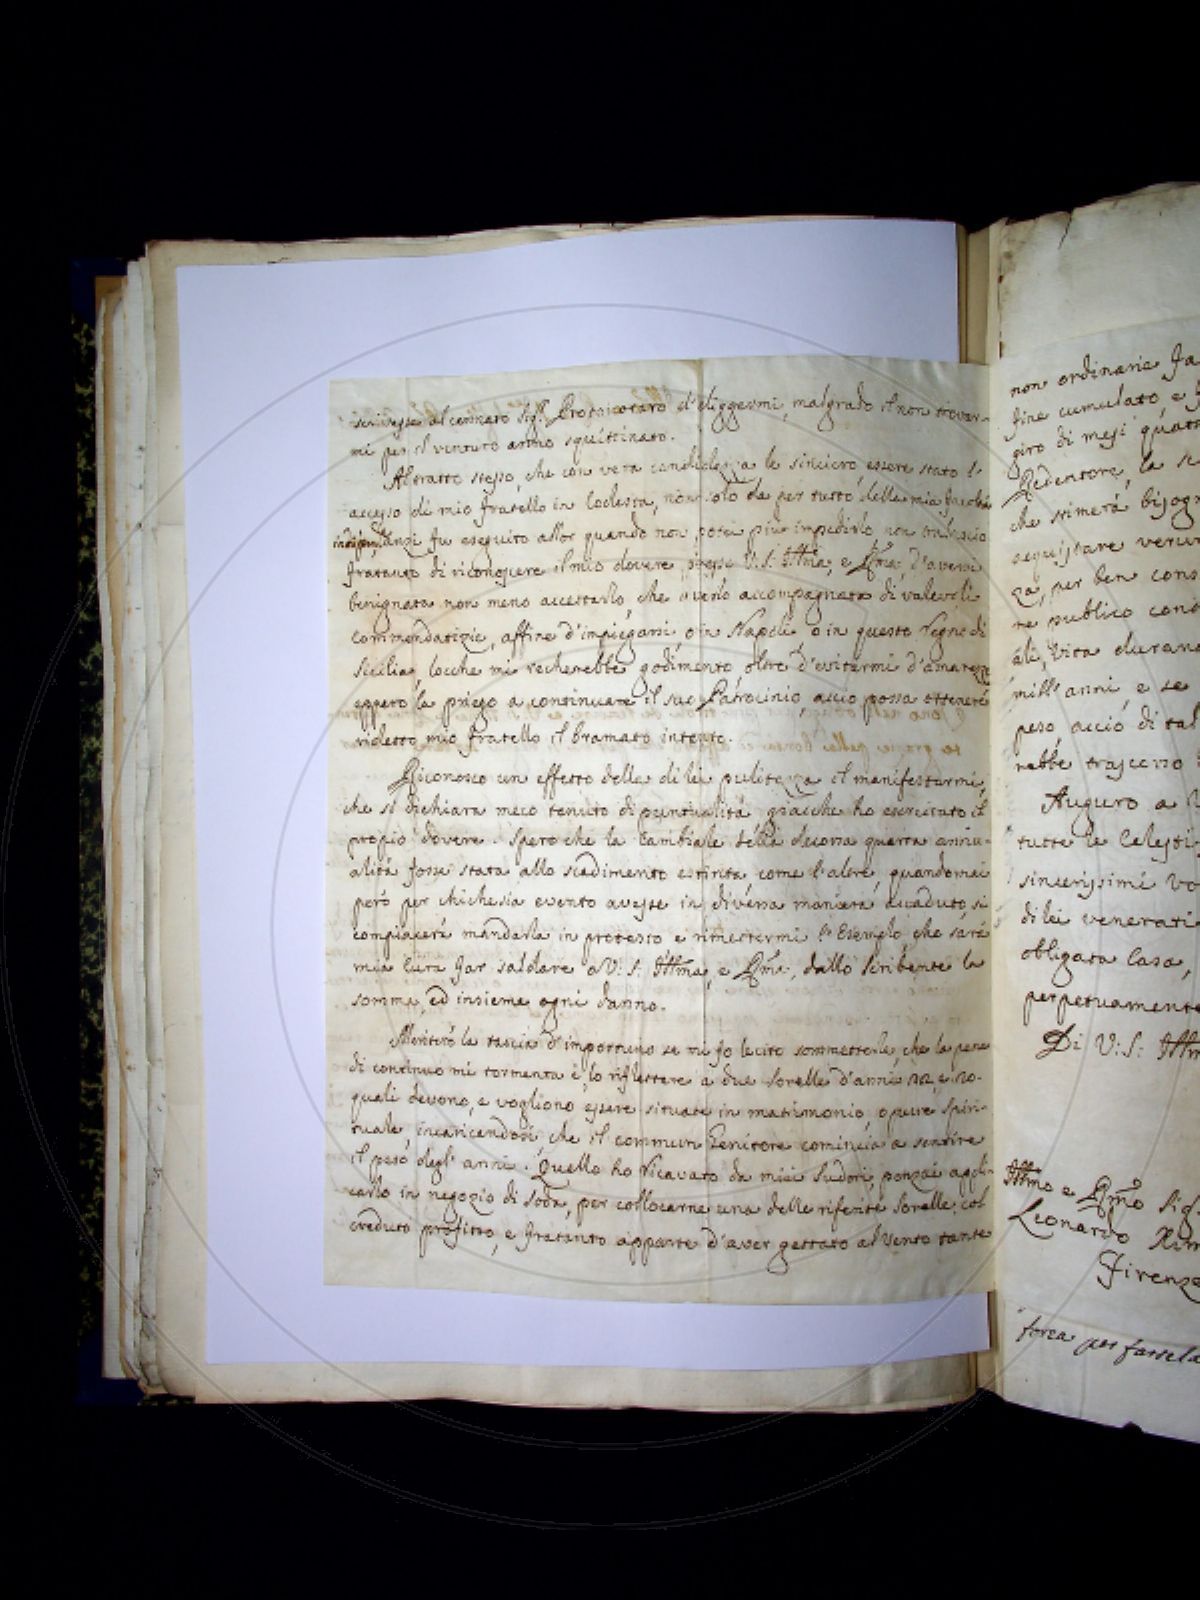 scrivesse al cennato Sig.r Protonotaro d'eliggermi, malgrado il non trovar-
mi per il venturo anno squittinato.
Al tratto stesso, che con vera candidezza le sincero, essere stato l'
accesso di mio fratello in Codesta, non solo da per tutto della mia
anzi fu eseguito allor quando non potei più impedirlo, non tralascio
fratanto di riconoscere il mio dovere presso V. S. Ill̃ma, e R̃ma, d'aversi
benignata non meno accettarlo, che averlo accompagnata di valevoli
commendatizie, affine d'impiegarsi o in Napoli o in questo Regno di
Sicilia, locche mi recherebbe godimento oltre d'evitarmi d'amarezze
eppero la priego a continuare il suo Patrocinio, acciò possa ottenere
ridetto mio fratello il bramato intento.
Riconosco un effetto della di lei pulitezza il manifestarmi,
che si dichiara meco tenuto di puntualità giacche ho esercitato il
propio dovere. Spero che la Cambiale della decorsa quarta annu-
alità fosse stata allo scadimento estinta, come l'altre, quandomai
però per chichesia evento avesse in diversa maniera accaduto, si
compiacerà mandarla in protesto e rimettermi l'Esemplo, che sarà
mia Cura far saldare a V: S: Ill̃ma, e R̃ma, dallo Scribente la
somma, ed insieme ogni danno.
Meriterò la taccia d'importuno se mi fo lecito sommetterle, che la pena
di continuo mi tormenta è lo riflettere a due Sorelle d'anni 22, e 20.
quali devono, e vogliono essere situate in matrimonio, opure spiri-
tuale, incaricandosi che il commun Genitore comincia a sentire
il peso degl'anni. Quello ho ricavato da miei sudori, ponzai appli-
carlo in negozio di Soda, per collocarne una delle riferite Sorelle col
creduto profitto, e fratanto apparte d'aver gettato al Vento tante
non ordinarie
fine cumulato, e
giro di mesi
Redentore, la
che stimerà
acquistare
za, per ben
ne publico
ali, Vita
mill'anni, e se
peso, acciò di tal
rebbe trascorso
Auguro a
tutte le
sincerissimi
di lei
obligata Casa,
perpetuamente
Di V: S:
Ill̃mo e R̃mo Sig.
Leonardo
Firenze